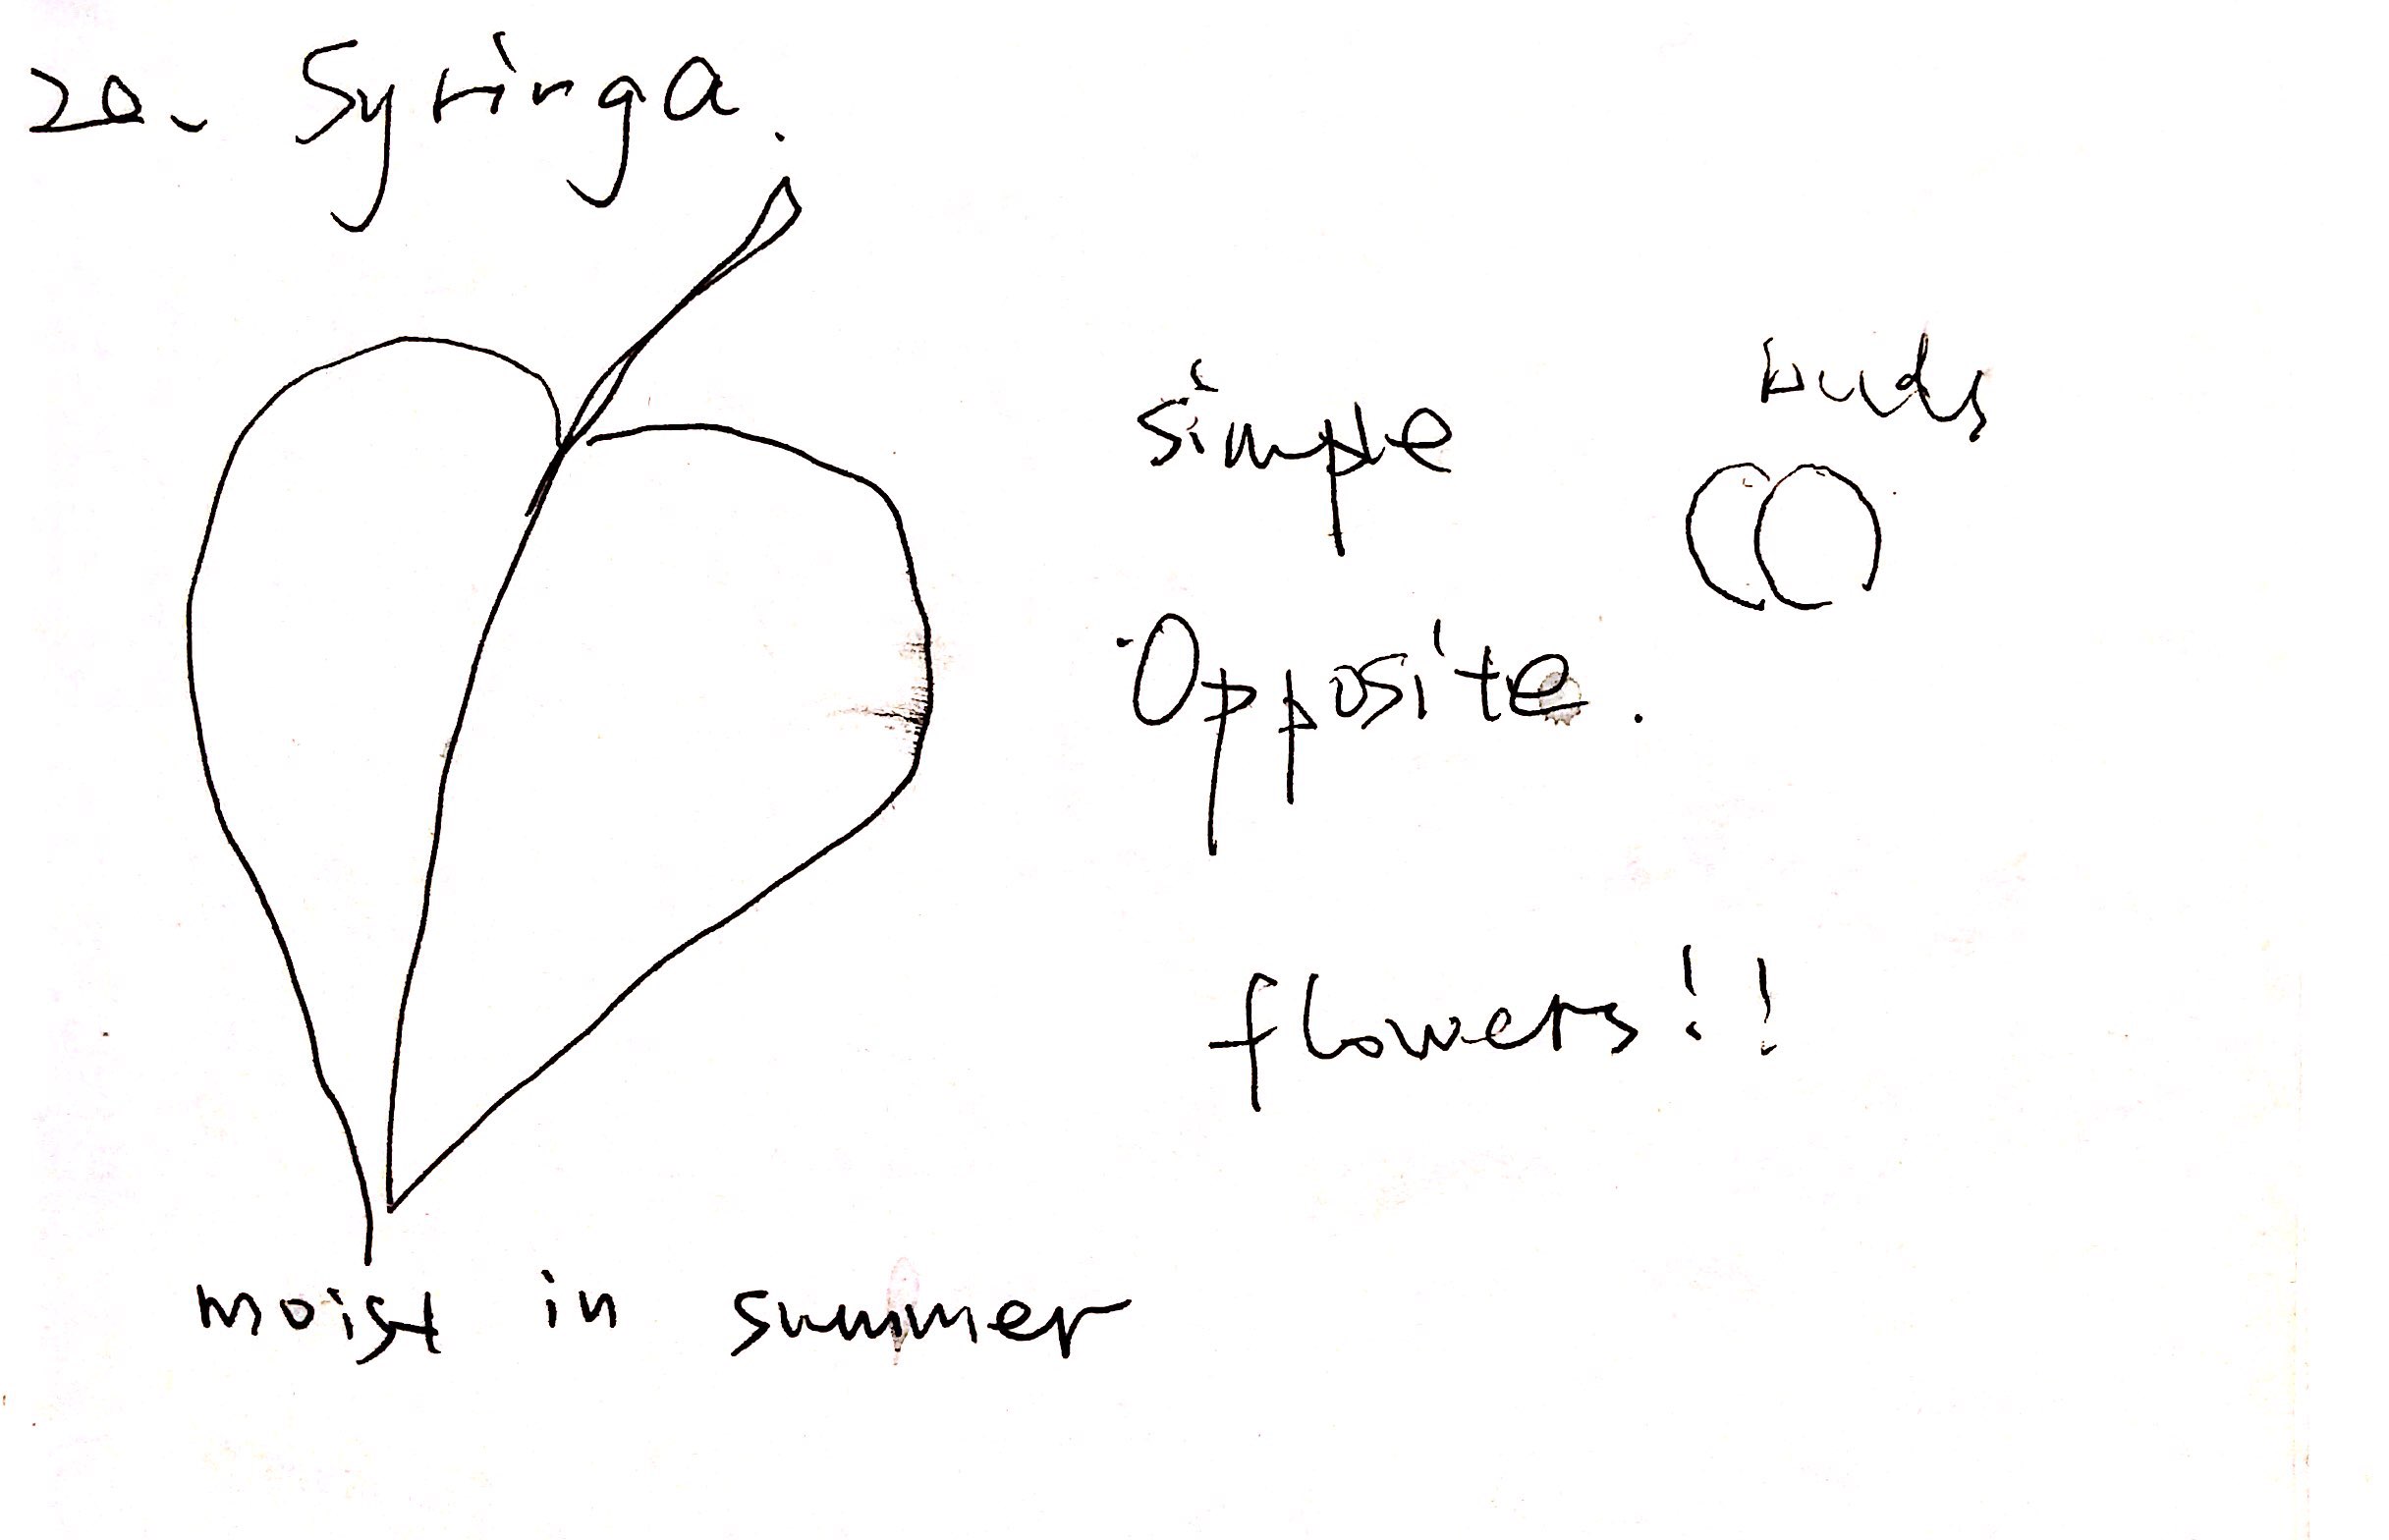 20. Syringa.
buds
simple
Opposite.
flowers!!
moist in summer